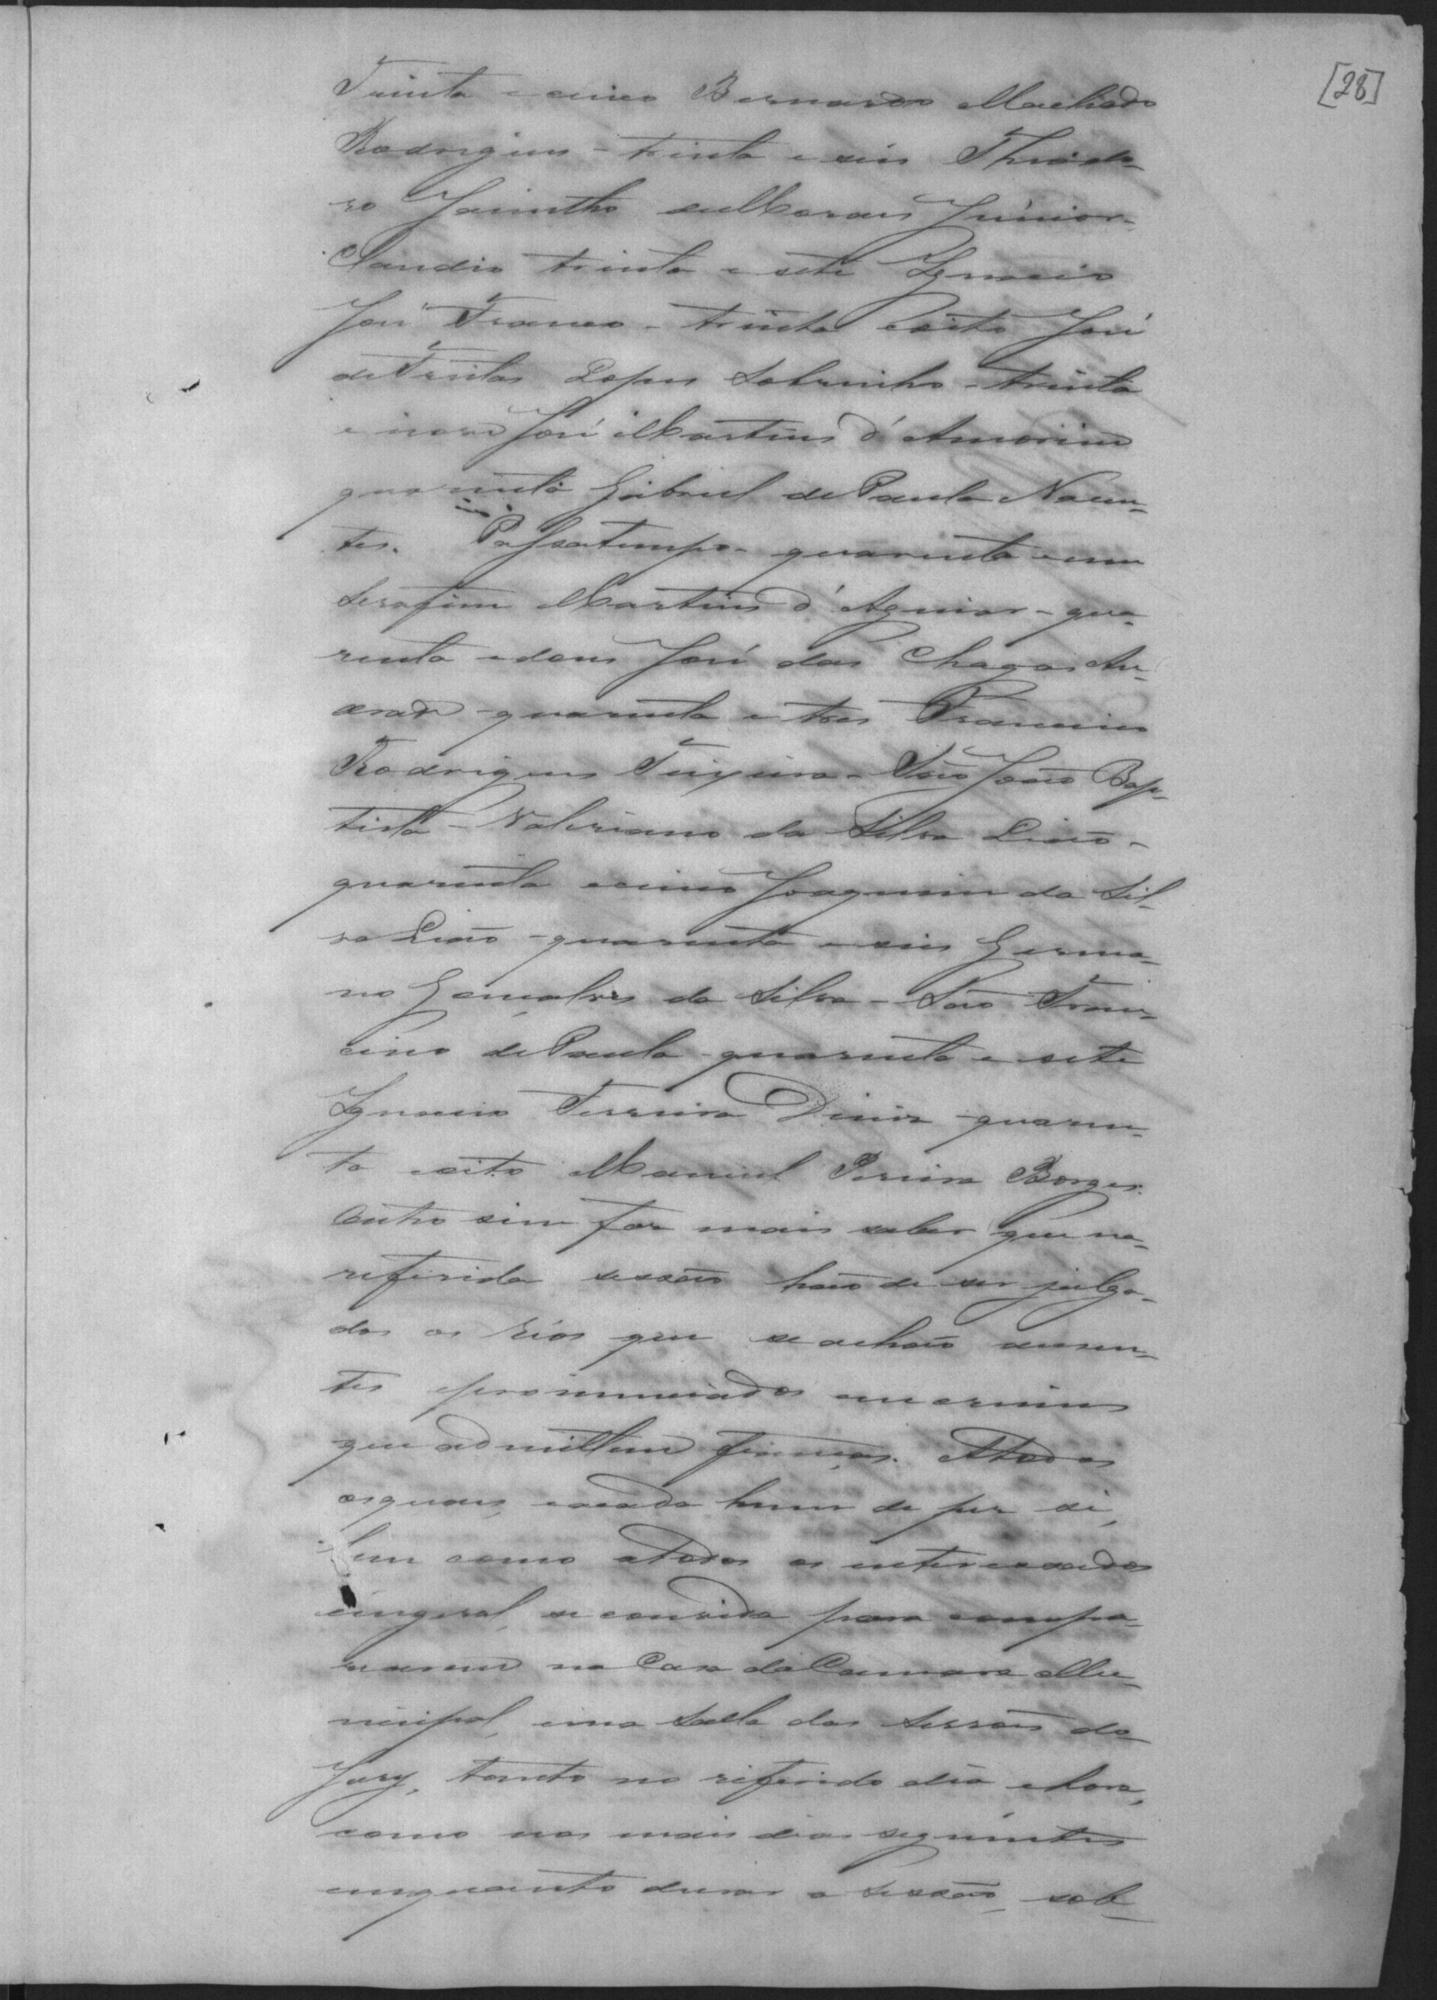 [28]
Trinta e cinco Bernardo Machado
Rodrigues - trinta e seis Theodo-
ro Jacintho de Moraes Júnior -
Claudio trinta e sete Ignacio
José Franco - trinta e oito José
de Freitas Lopes Sobrinho - trinta
e nove José Martins d'Amorim
quarenta Gabriel de Paula Naun-
tes. Passatempo - quarenta e um
Serafim Martins d'Aguiar - qua-
renta e dous José das Chagas An-
drade - quarenta e tres Francisco
Rodrigues Teixeira - São João Bap-
tista - Valeriano da Silva Leão -
quarenta e cinco Joaquim da Sil-
va Leão - quarenta e seis Germa-
no Gonçalves da Silva - São Fran-
cisco de Paula - quarenta e sete
Ignacio Ferreira Diniz - quaren-
ta e oito Manoel Pereira Borges.
Outro sim faz mais saber que na
referida sessão hão de ser julga-
dos os réos que se achão ausen-
tes e pronunciados em crimes
que admittem fianças. A todos
os quaes, e a cada hum de per si,
bem como a todos os interessados
em geral, se convida para compa-
recerem na Casa da Camara Mu-
nicipal, e na Salla das Sessões do
Jury, tanto no referido dia e hora,
como nos mais dias seguintes
emquanto durar a sessão, sob